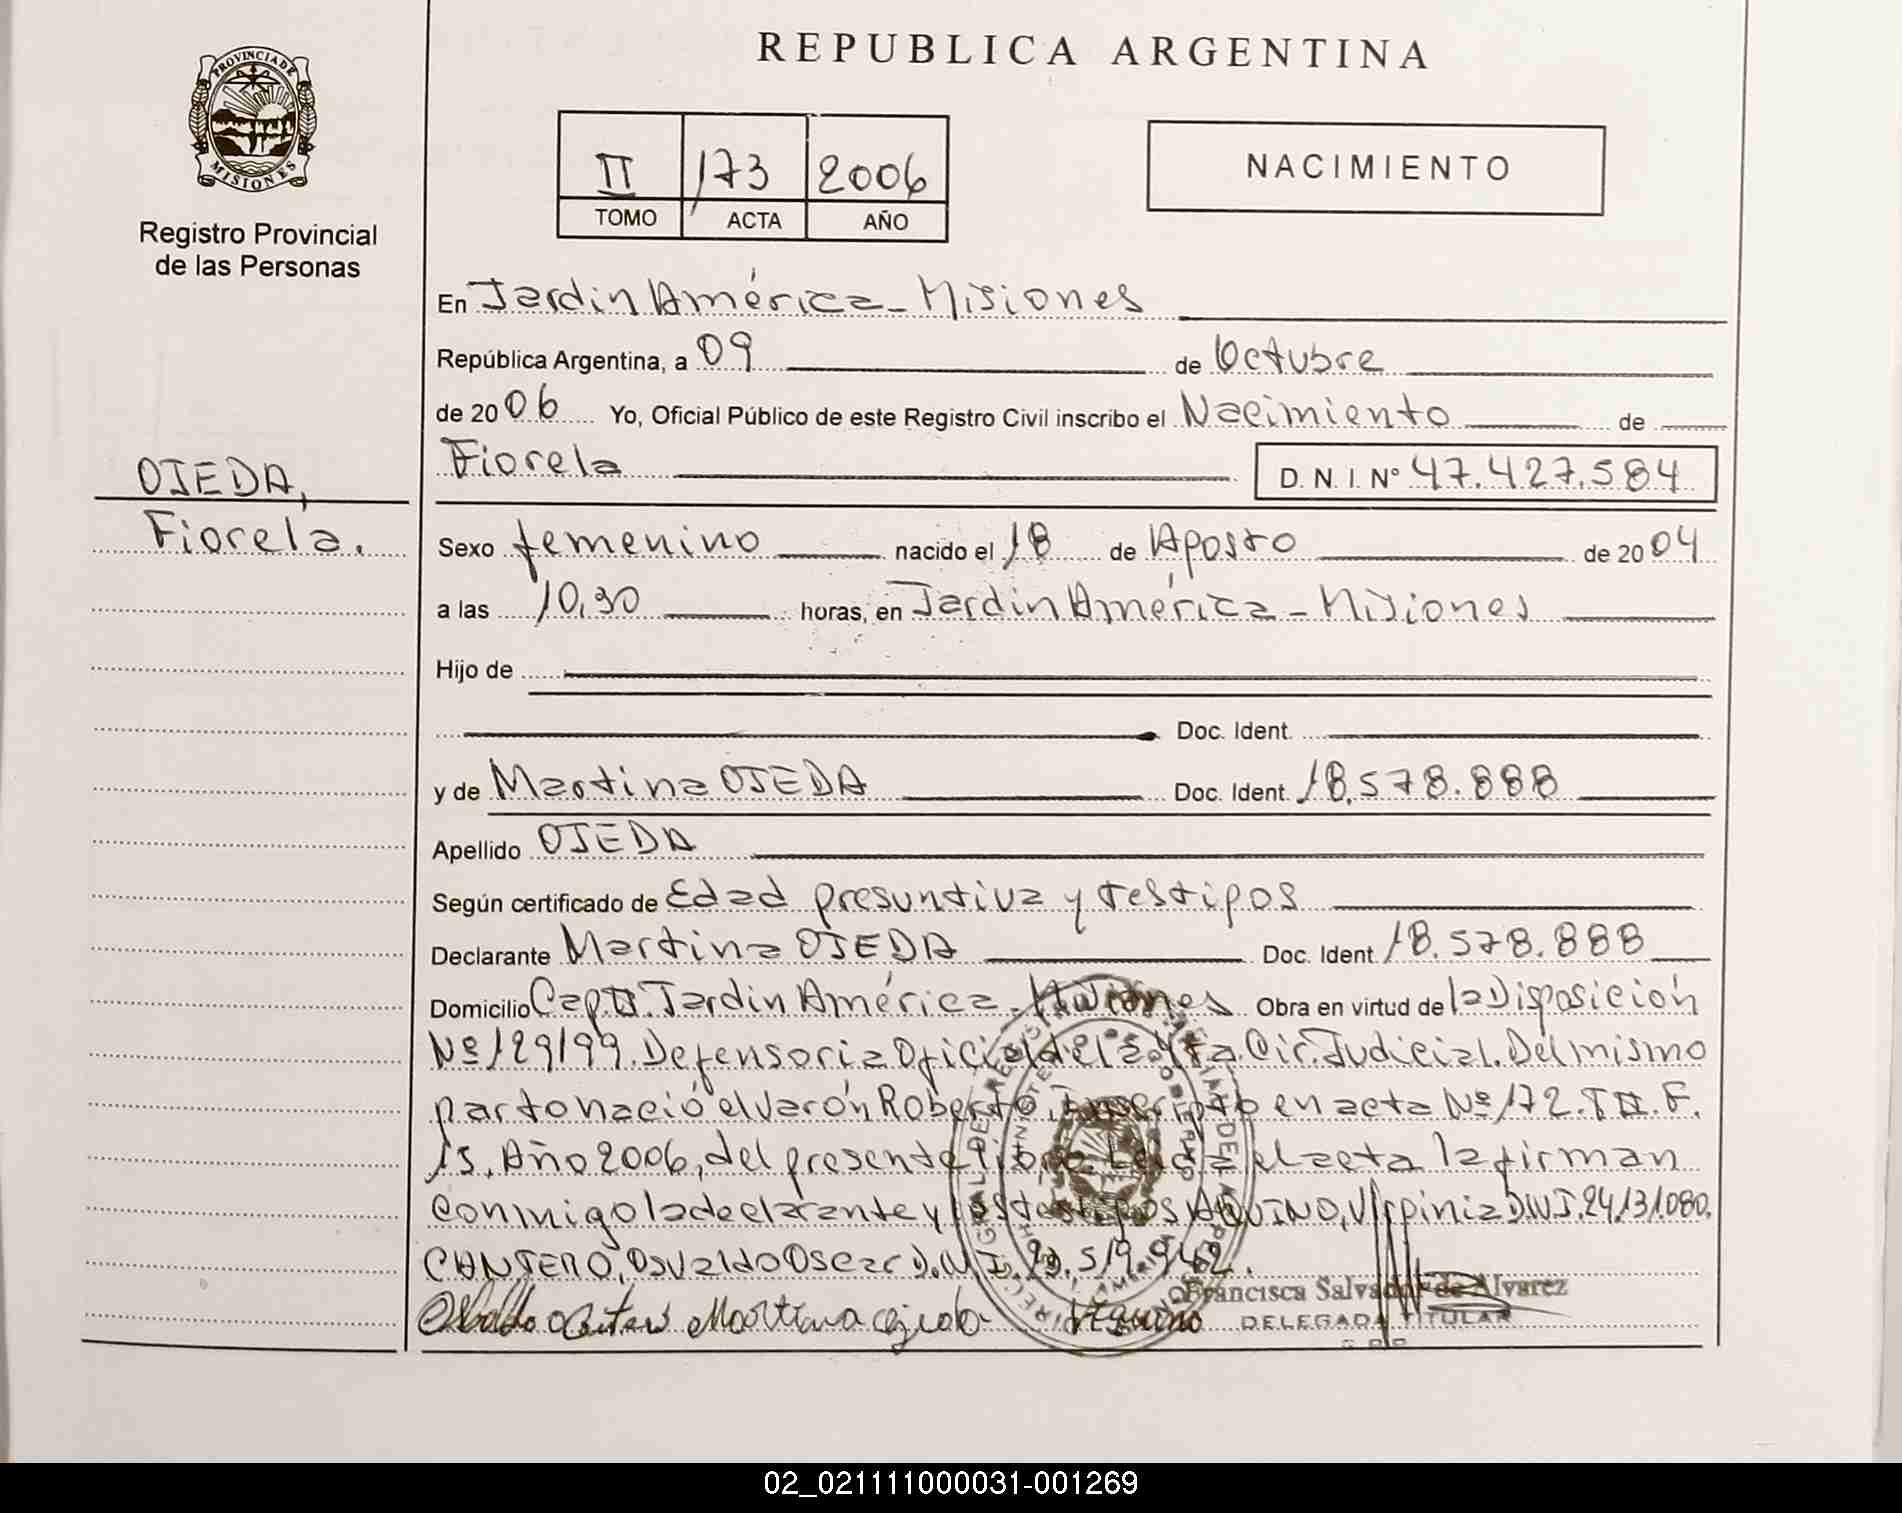 REPUBLICA ARGENTINA
PROVINCIA DE
MISIONES
Registro Provincial
de las Personas
II 173 2006
TOMO ACTA AÑO
NACIMIENTO
OJEDA,
Fiorela.
En Jardin América - Misiones
República Argentina, a 09 de Octubre
de 2006 Yo, Oficial Público de este Registro Civil inscribo el Nacimiento de
Fiorela D. N. I. Nº 47.427.584
Sexo femenino nacido el 18 de Agosto de 2004
a las 10,30 horas, en Jardin América - Misiones
Hijo de
Doc. Ident.
y de Martina OJEDA Doc. Ident. 18.578.888
Apellido OJEDA
Según certificado de Edad presuntiva y testigos
Declarante Martina OJEDA Doc. Ident. 18.578.888
Domicilio Jardin América - Misiones Obra en virtud de la Disposición
Nº 129/99. Defensoria Oficial de la Cir. Judicial. Del mismo
parto nació el varón Roberto, Inscripto en acta Nº 172. T II. F.
15. Año 2006, del presente libro. Leida el acta la firman
conmigo la declarante y los testigos AQUINO, Virginia D.N.I. 24.131.080.
CANTERO, Osvaldo Oscar D.N.I. 519.942.
Osvaldo Martina ojeda
Francisca Salvador de Alvarez
DELEGADA TITULAR
02_021111000031-001269